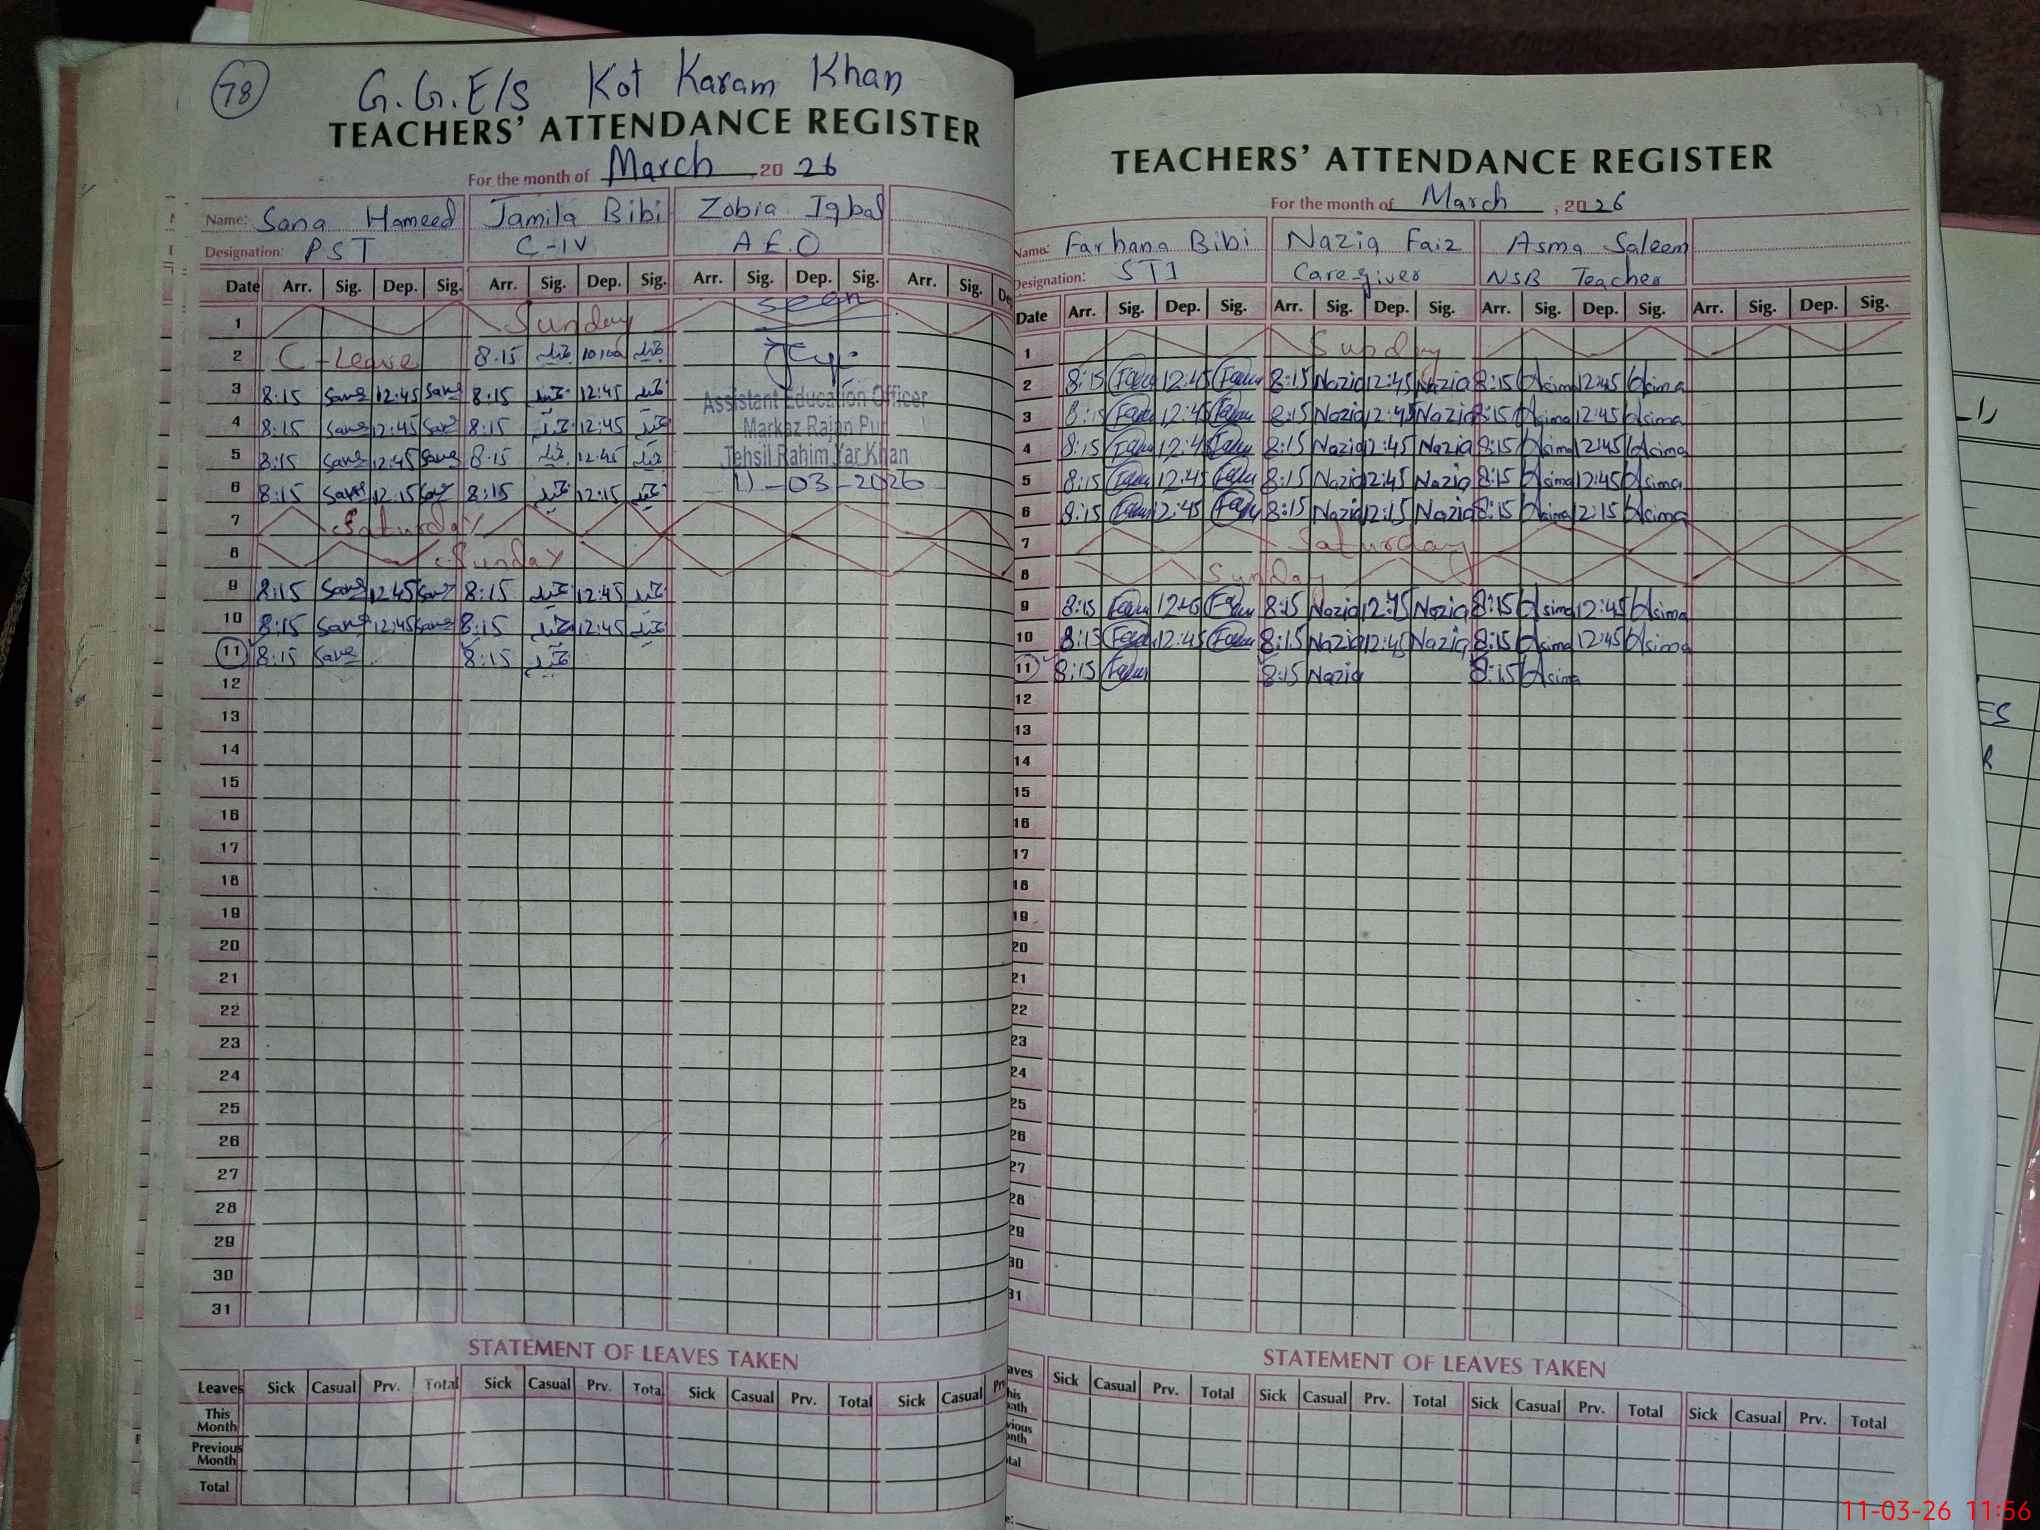 78
G.G.E/S Kot Karam Khan
TEACHERS' ATTENDANCE REGISTER
For the month of March 20 26
Name: Sana Hameed Jamila Bibi Zobia Iqbal
Designation: PST C-IV A.E.O
Date Arr. Sig. Dep. Sig. Arr. Sig. Dep. Sig. Arr. Sig. Dep. Sig. Arr. Sig. De
seen
1 Sunday
2 C-Leave 8:15
3 8:15 Sana 12:45 Sana 8:15 12:45
Assistant Education Officer
4 8:15 Sana 12:45 Sana 8:15 12:45
Markaz Rajan Pur
5 8:15 Sana 12:45 Sana 8:15 12:45
Tehsil Rahim Yar Khan
6 8:15 Sana 12:15 Sana 8:15 12:15
11-03-2026
7 Saturday
8 Sunday
9 8:15 Sana 12:45 Sana 8:15 12:45
10 8:15 Sana 12:45 Sana 8:15 12:45
11 8:15 Sana 8:15
12
13
14
15
16
17
18
19
20
21
22
23
24
25
26
27
28
29
30
31
STATEMENT OF LEAVES TAKEN
Leaves Sick Casual Prv. Total Sick Casual Prv. Total Sick Casual Prv. Total Sick Casual Prv
This Month
Previous Month
Total
TEACHERS' ATTENDANCE REGISTER
For the month of March, 20 26
Name: Farhana Bibi Nazia Faiz Asma Saleem
Designation: STI Caregiver NSB Teacher
Date Arr. Sig. Dep. Sig. Arr. Sig. Dep. Sig. Arr. Sig. Dep. Sig. Arr. Sig. Dep. Sig.
1 Sunday
2 8:15 12:45 8:15 Nazia 12:45 Nazia 8:15 Asima 12:45 Asima
3 8:15 12:45 8:15 Nazia 12:45 Nazia 8:15 Asima 12:45 Asima
4 8:15 12:45 8:15 Nazia 12:45 Nazia 8:15 Asima 12:45 Asima
5 8:15 12:45 8:15 Nazia 12:45 Nazia 8:15 Asima 12:45 Asima
6 8:15 12:45 8:15 Nazia 12:15 Nazia 8:15 Asima 12:15 Asima
7 Saturday
8 Sunday
9 8:15 8:15 Nazia 12:45 Nazia 8:15 Asima 12:45 Asima
10 8:15 12:45 8:15 Nazia 12:45 Nazia 8:15 Asima 12:45 Asima
11 8:15 8:15 Nazia 8:15 Asima
12
13
14
15
16
17
18
19
20
21
22
23
24
25
26
27
28
29
30
31
STATEMENT OF LEAVES TAKEN
aves Sick Casual Prv. Total Sick Casual Prv. Total Sick Casual Prv. Total Sick Casual Prv. Total
11-03-26 11:56